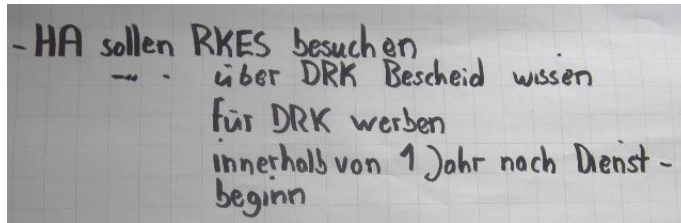 - HA sollen RKES besuchen
-"- . über DRK Bescheid wissen
für DRK werben
innerhalb von 1 Jahr nach Dienst-
beginn